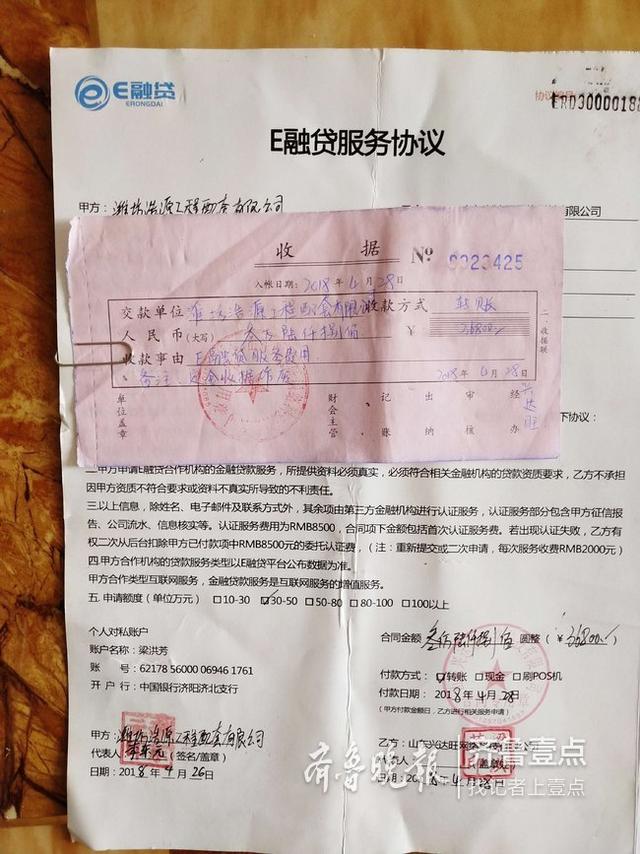 E融贷
ERONGDAI
协议编号
ERD30000188
E融贷服务协议
甲方：潍坊浩源工程配套有限公司
有限公司
收 据 № 0023425
入帐日期：2018年4月28日
交款单位 潍坊浩源工程配套有限公司 收款方式 转账
人民币（大写） 叁万陆仟捌佰 ￥ 36800/
收款事由 E融贷服务费用
备注：定金收据作废 2018年4月28日
单位盖章 财会主管 记账 出纳 审核 经办
二 收据联
下协议：
二.甲方申请E融贷合作机构的金融贷款服务，所提供资料必须真实，必须符合相关金融机构的贷款资质要求，乙方不承担
因甲方资质不符合要求或资料不真实所导致的不利责任。
三.以上信息，除姓名、电子邮件及联系方式外，其余项由第三方金融机构进行认证服务，认证服务部分包含甲方征信报
告、公司流水、信息核实等。认证服务费用为RMB8500，合同项下金额包括首次认证服务费。若出现认证失败，乙方有
权二次从后台扣除甲方已付款项中RMB8500元的委托认证费，（注：重新提交或二次申请，每次服务收费RMB2000元）
四.甲方合作机构的贷款服务类型以E融贷平台公布数据为准。
甲方合作类型互联网服务，金融贷款服务是互联网服务的增值服务。
五. 申请额度（单位万元） □10-30 ☑30-50 □50-80 □80-100 □100以上
个人对私账户
账户名称：梁洪芳
账 号：62178 56000 06946 1761
开 户 行：中国银行济阳济北支行
合同金额 叁万陆仟捌佰 圆整（￥36800/）
付款方式：☑转账 □现金 □刷POS机
付款日期：2018年4月28日
（甲方付款金额日，乙方进行相关服务申请）
甲方：潍坊浩源工程配套有限公司
代表人： （签名/盖章）
日期：2018年4月26日
乙方：山东兴达旺网
代表人
齐鲁晚报
齐鲁壹点
找记者上壹点